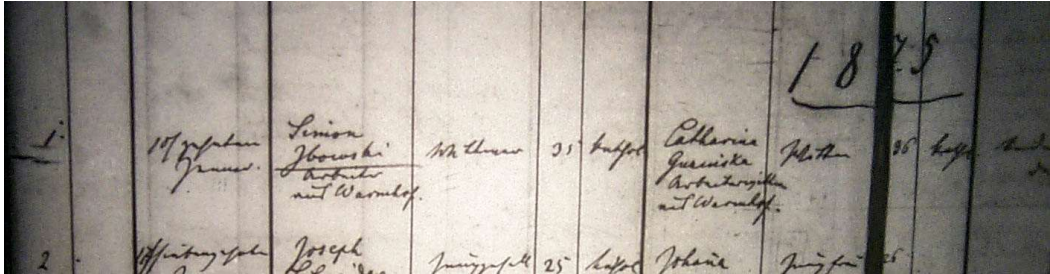 1875
1.
10/ zehnten
Januar.
Simon
Jbowski
Arbeiter
aus Warmhof.
Wittwer
35
kathol
Catharina
Arbeiterwittwe
aus Warmhof.
Wittwe
36
kathol.
2
17/ siebzehnten
Joseph
Junggesell
25
kathol
Johana
Jungfrau
26